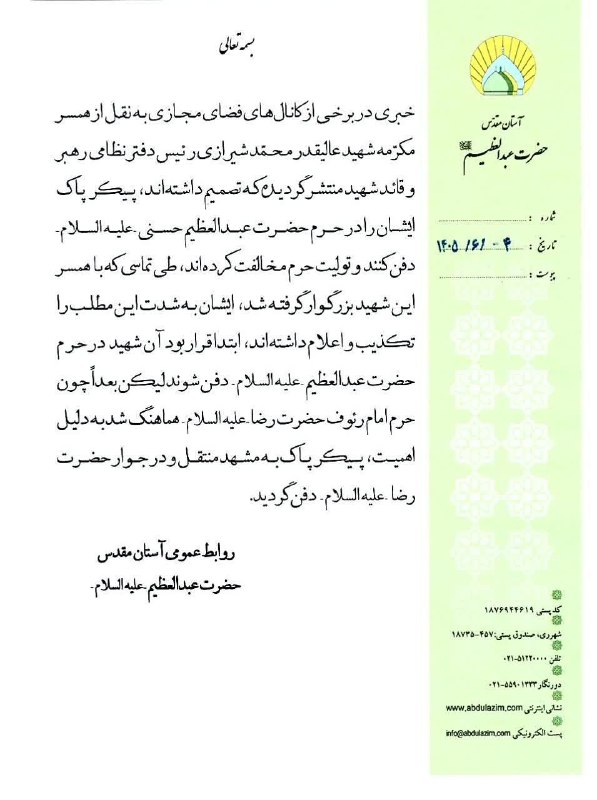 بسمه تعالی
خبری در برخی از کانال‌های فضای مجازی به نقل از همسر
مکرّمه شهید عالیقدر محمّد شیرازی رئیس دفتر نظامی رهبر
و قائد شهید منتشر گردیده که تصمیم داشته‌اند، پیکر پاک
ایشان را در حرم حضرت عبدالعظیم حسنی ـ علیه السلام ـ
دفن کنند و تولیت حرم مخالفت کرده‌اند، طی تماسی که با همسر
این شهید بزرگوار گرفته شد، ایشان به شدت این مطلب را
تکذیب و اعلام داشته‌اند، ابتدا قرار بود آن شهید در حرم
حضرت عبدالعظیم ـ علیه السلام ـ دفن شوند لیکن بعداً چون
حرم امام رئوف حضرت رضا ـ علیه السلام ـ هماهنگ شد به دلیل
اهمیت، پیکر پاک به مشهد منتقل و در جوار حضرت
رضا ـ علیه السلام ـ دفن گردید.
روابط عمومی آستان مقدس
حضرت عبدالعظیم ـ علیه السلام ـ
آستان مقدس
حضرت عبدالعظیم
شماره :
تاریخ : ۱۴۰۵/۶/۰۴
پیوست :
کد پستی ۱۸۷۶۹۴۴۶۱۹
شهرری، صندوق پستی: ۴۵۷-۱۸۷۳۵
تلفن ۵۱۲۲۰۰۰۰-۰۲۱
دورنگار ۵۵۹۰۱۳۳۳-۰۲۱
نشانی اینترنتی www.abdulazim.com
پست الکترونیکی info@abdulazim.com